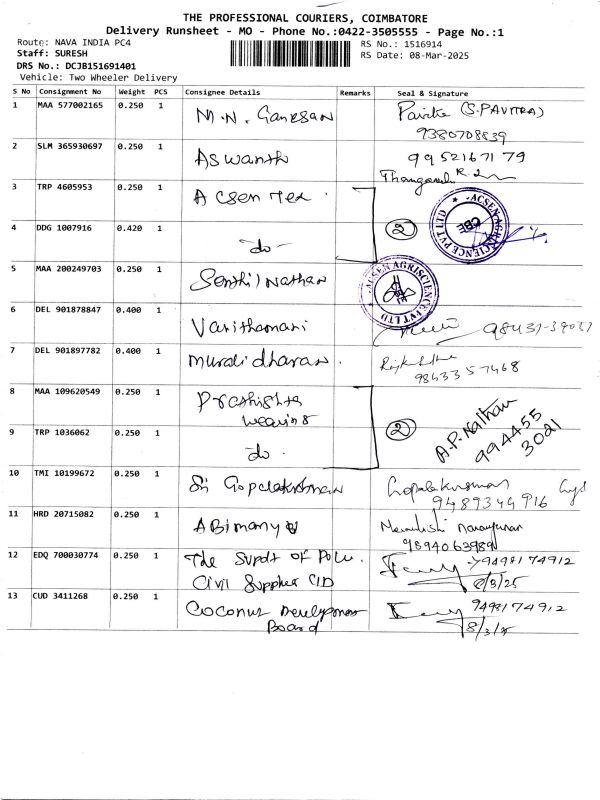 THE PROFESSIONAL COURIERS, COIMBATORE
Delivery Runsheet - MO - Phone No.:0422-3505555 - Page No.:1
Route: NAVA INDIA PC4
RS No.: 1516914
Staff: SURESH
RS Date: 08-Mar-2025
DRS No.: DCJB151691401
Vehicle: Two Wheeler Delivery
S No Consignment No Weight PCS Consignee Details Remarks Seal & Signature
1 MAA 577002165 0.250 1 M.N. Ganesan (S.PAVITRA)
9380708839
2 SLM 365930697 0.250 1 Aswanth 9952167179
3 TRP 4605953 0.250 1 Acsen Tex.
4 DDG 1007916 0.420 1 do - 2
ACSEN AGRISCIENCE PVT LTD CBE
5 MAA 200249703 0.250 1 Senthilnathan
ACSEN AGRISCIENCE PVT LTD
6 DEL 901878847 0.400 1 Varithamani
7 DEL 901897782 0.400 1 Muralidharan.
9843357468
8 MAA 109620549 0.250 1 Prathishta
weaving
2 A.P. Nathan
994455
3021
9 TRP 1036062 0.250 1 do.
10 TMI 10199672 0.250 1 Sri Gopalakrishnan Gopalakrishnan
9489344916
11 HRD 20715082 0.250 1 Abimanyu Narayanan
9894063989
12 EDQ 700030774 0.250 1 The Supdt of Police. 9498174912
Civil Supplies CID 8/3/25
13 CUD 3411268 0.250 1 Coconut Development 9498174912
Board 8/3/25